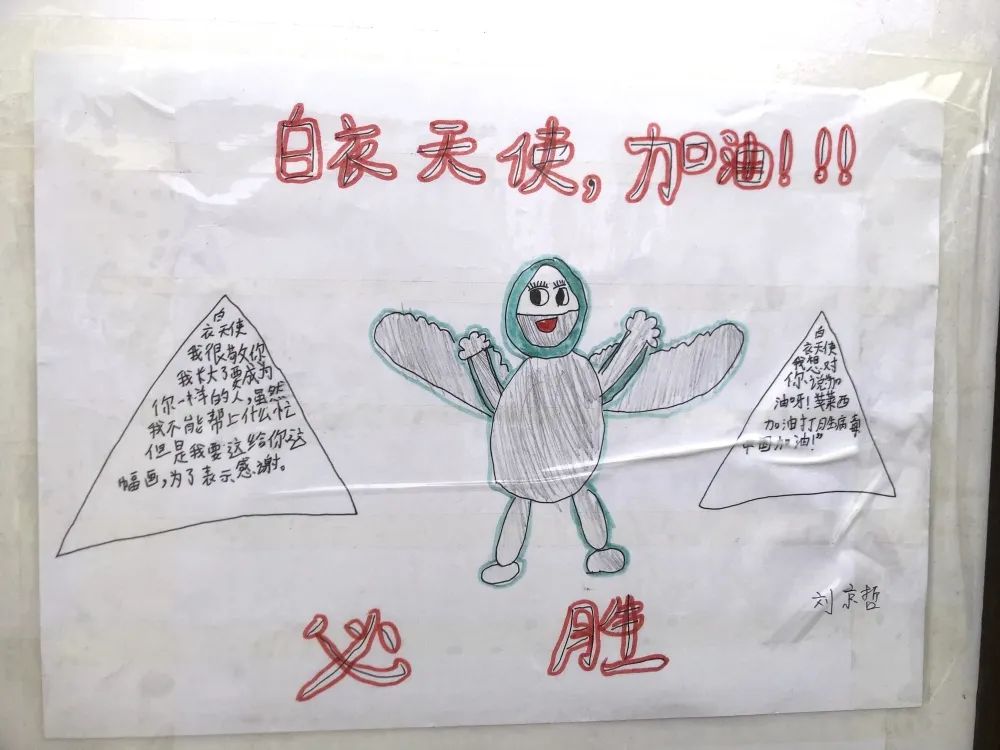 白衣天使,加油!!!
白
衣天使
我很敬你
我长大了要成为
你一样的人,虽然
我不能帮上什么忙
但是我要这给你这
幅画,为了表示感谢。
白
衣天使
我想对
你说加
油呀!莱西
加油打胜病毒
中国加油!”
刘京哲
必胜